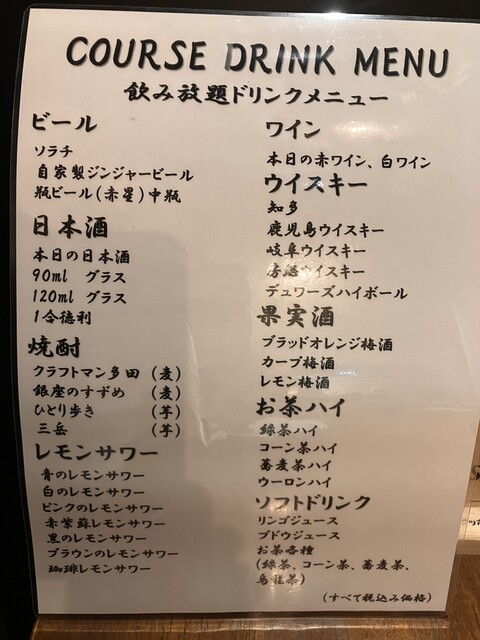 COURSE DRINK MENU
飲み放題ドリンクメニュー
ビール
ソラチ
自家製ジンジャービール
瓶ビール(赤星)中瓶
日本酒
本日の日本酒
90ml グラス
120ml グラス
1合徳利
焼酎
クラフトマン多田 (麦)
銀座のすずめ (麦)
ひとり歩き (芋)
三岳 (芋)
レモンサワー
青のレモンサワー
白のレモンサワー
ピンクのレモンサワー
赤紫蘇レモンサワー
黒のレモンサワー
ブラウンのレモンサワー
珈琲レモンサワー
ワイン
本日の赤ワイン、白ワイン
ウイスキー
知多
鹿児島ウイスキー
岐阜ウイスキー
房総ウイスキー
デュワーズハイボール
果実酒
ブラッドオレンジ梅酒
カープ梅酒
レモン梅酒
お茶ハイ
緑茶ハイ
コーン茶ハイ
蕎麦茶ハイ
ウーロンハイ
ソフトドリンク
リンゴジュース
ブドウジュース
お茶各種
(緑茶、コーン茶、蕎麦茶、
烏龍茶)
(すべて税込み価格)